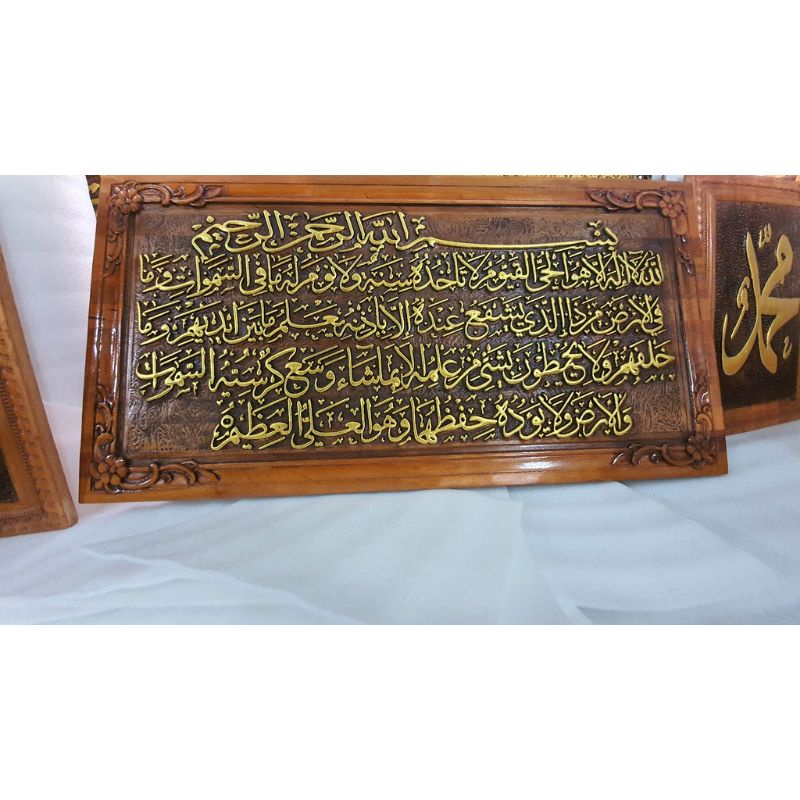 بسم الله الرحمن الرحيم
الله لا إله إلا هو الحي القيوم لا تأخذه سنة ولا نوم له ما في السموات وما
في الارض من ذا الذي يشفع عنده الا باذنه يعلم ما بين ايديهم وما
خلفهم ولا يحيطون بشئ من علمه الا بما شاء وسع كرسيه السموات
والارض ولا يوده حفظهما وهو العلي العظيم
محمد